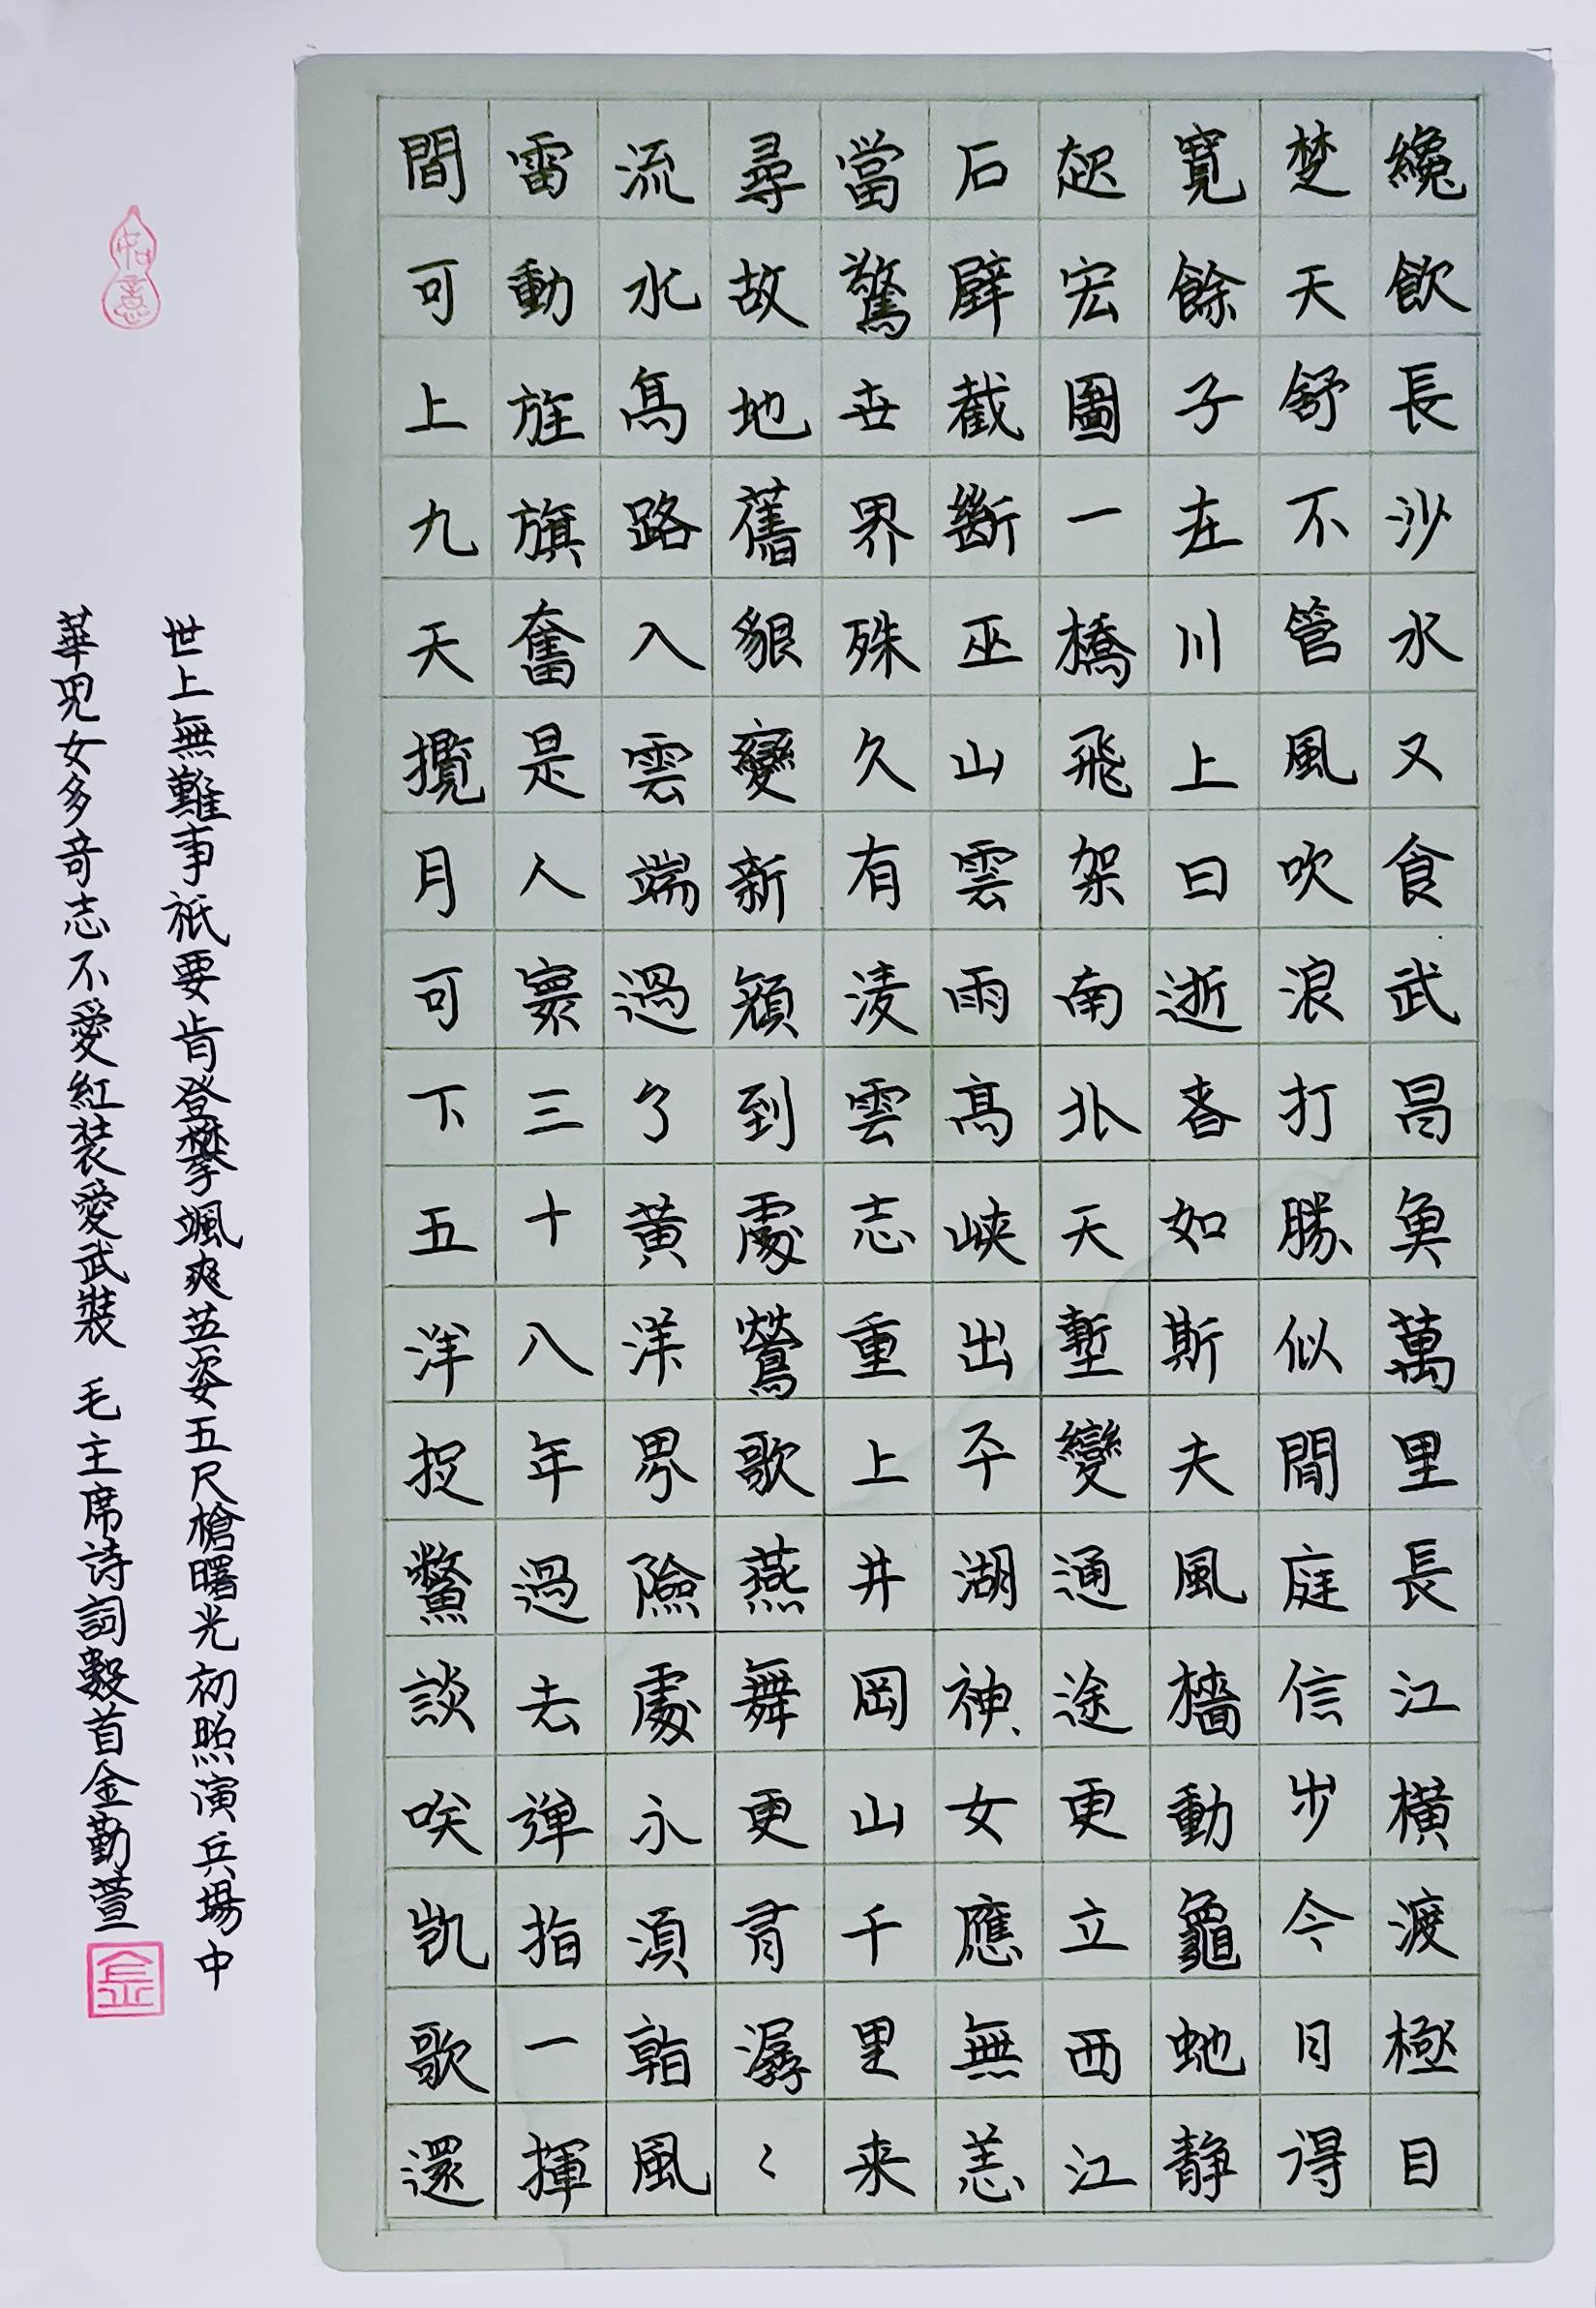 纔飲長沙水又食武昌魚萬里長江橫渡極目
楚天舒不管風吹浪打勝似閒庭信步今日得
寬餘子在川上曰逝者如斯夫風檣動龜蛇靜
起宏圖一橋飛架南北天塹變通途更立西江
石壁截斷巫山雲雨高峽出平湖神女應無恙
當驚世界殊久有淩雲志重上井岡山千里來
尋故地舊貌變新顏到處鶯歌燕舞更有潺〻
流水高路入雲端過了黃洋界險處不須看風
雷動旌旗奮是人寰三十八年過去彈指一揮
間可上九天攬月可下五洋捉鱉談笑凱歌還
世上無難事祇要肯登攀颯爽英姿五尺槍曙光初照演兵場中
華兒女多奇志不愛紅裝愛武裝 毛主席詩詞數首金勤萱
如意
金